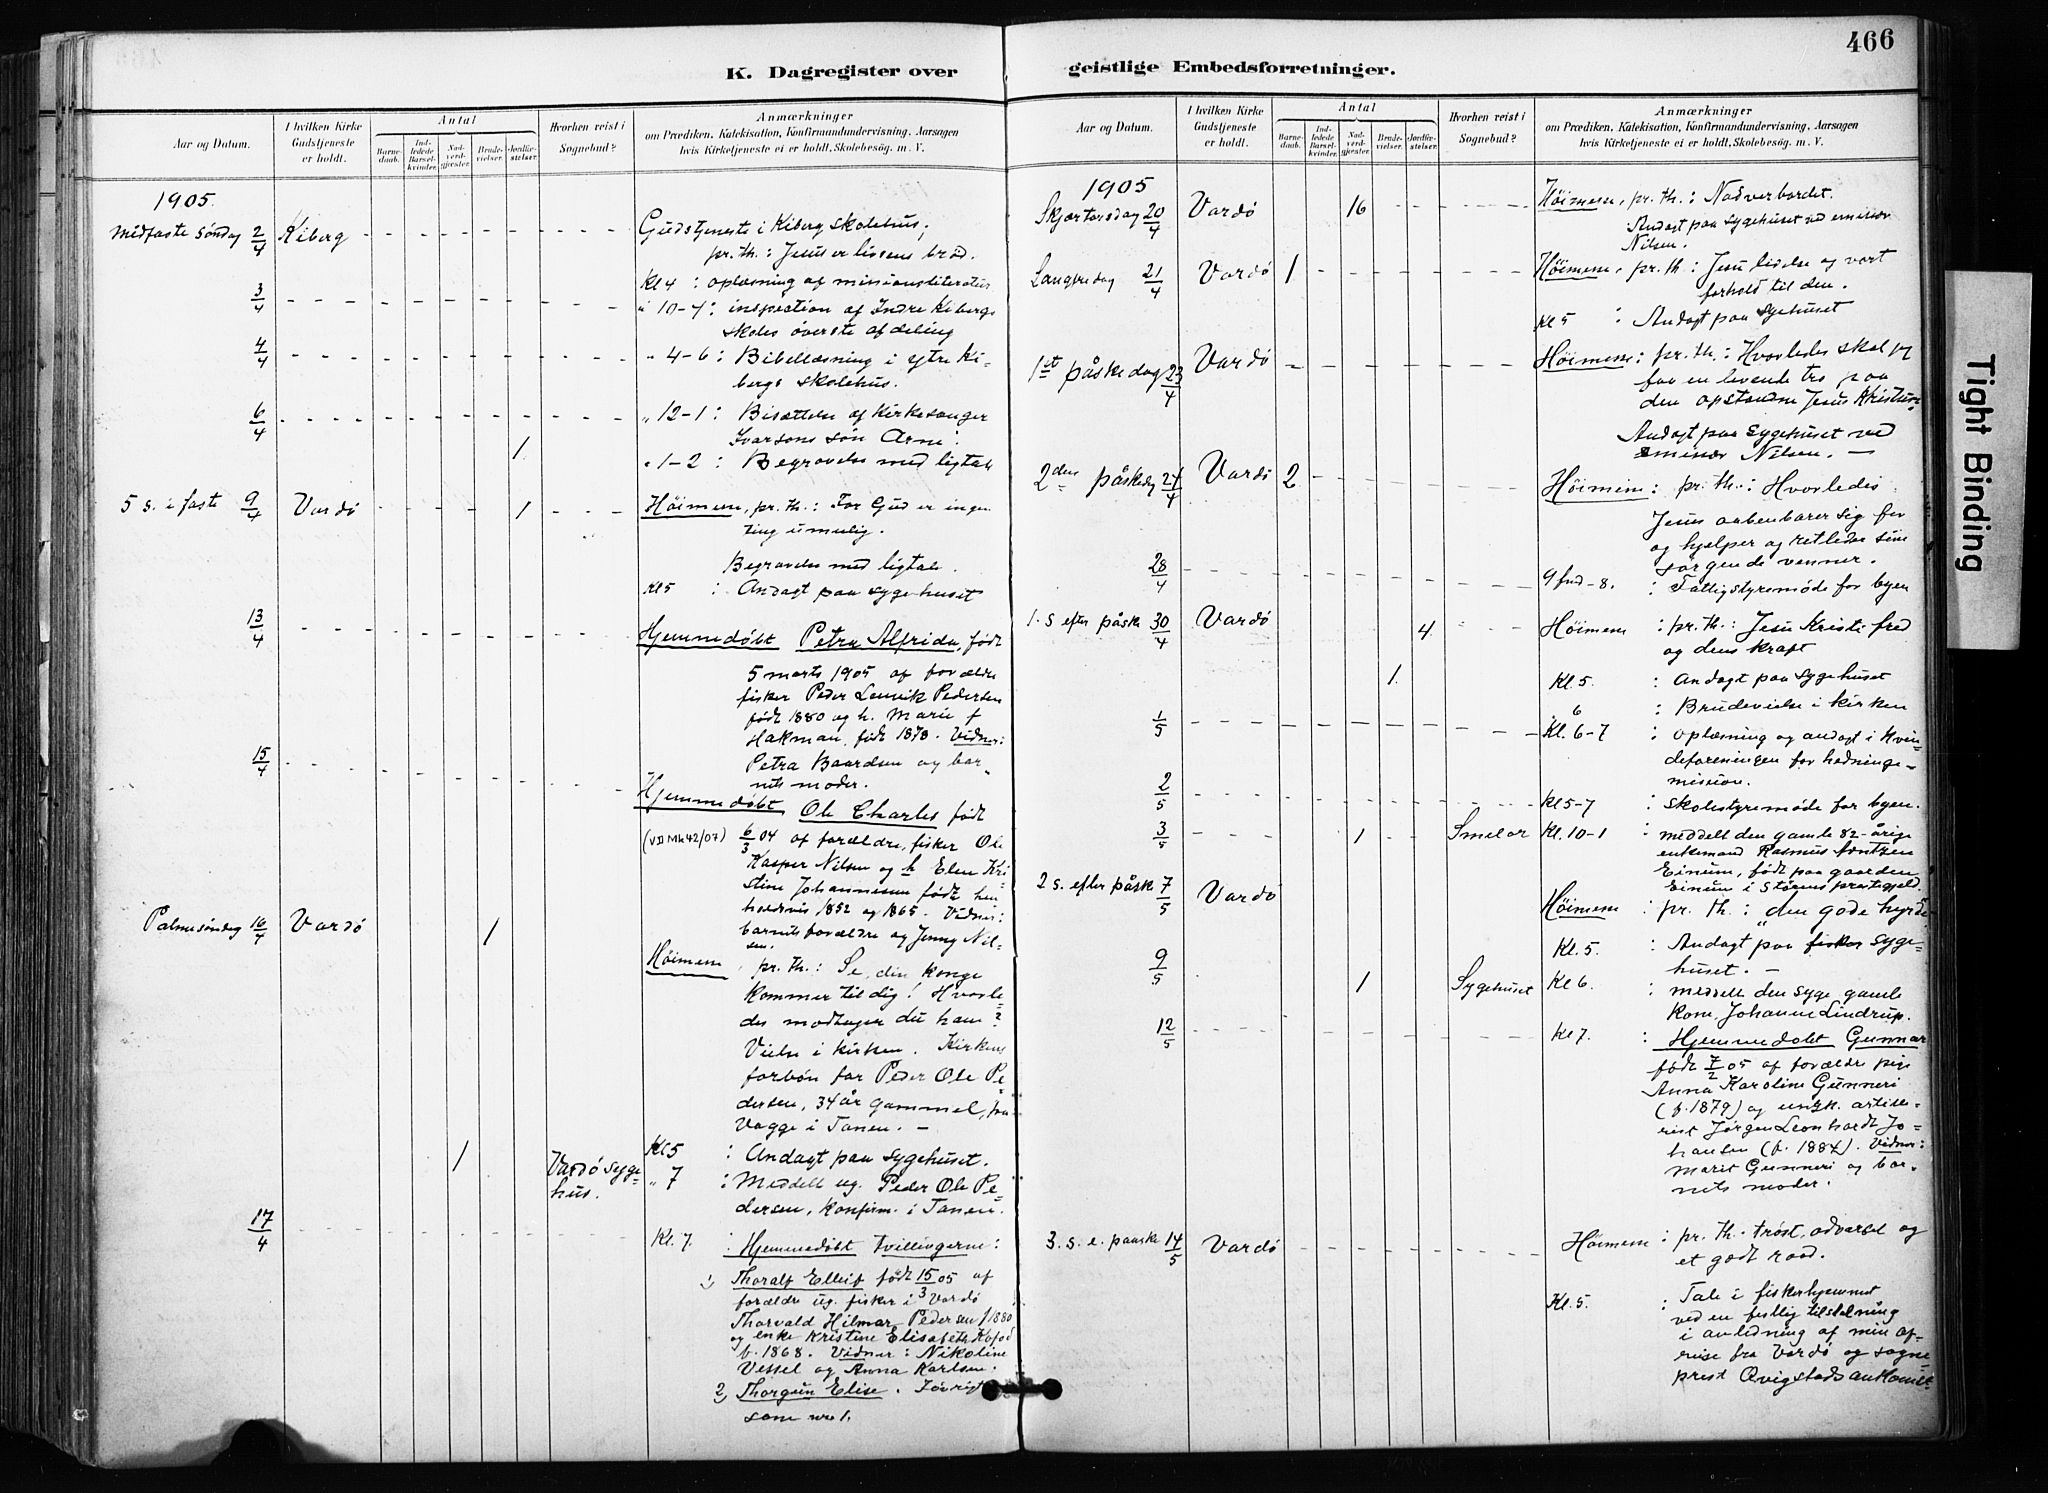 466
K. Dagregister over
geistlige Embedsforretninger.
Aar og Datum.
I hvilken Kirke
Gudstjeneste
er holdt.
Antal
Barne-
daab.
Ind-
ledede
Barsel-
kvinder.
Nad-
verd-
gjester.
Brude-
vielser.
Jordfæ-
stelser.
Hvorhen reist i
Sognebud?
Anmærkninger
om Prædiken, Katekisation, Konfirmandundervisning, Aarsagen
hvis Kirketjeneste ei er holdt, Skolebesøg. m. V.
1905.
Midfaste søndag 2/4 Kiberg
Gudstjeneste i Kiberg skolehus;
pr. th.: Jesus er livsens brød.
Kl 4 : oplæsning af missionsliteratur
3/4 " 10-1 : inspection af Indre Kibergs
skoles øverste afdeling
4/4 " 4-6 : Bibellæsning i ytre Ki-
bergs skolehus.
6/4 " 12-1 : Bisættelse af Kirkesanger
Ivarsons søn Arne.
1 " 1-2 : Begravelse med ligtale
5 s. i faste 9/4 Vardø 1 Høimesse, pr. th.: For Gud er ingen
ting umulig.
Begravelse med ligtale.
Kl 5 : Andagt paa sygehuset
13/4 Hjemmedøbt Petra Alfrida, født
5 marts 1905 af forældre
fisker Peder Pedersen
født 1880 og h. Marie f
Hakman, født 1878. Vidner:
Petra Baardsen og bar-
nets moder.
15/4 Hjemmedøbt Ole Charles født
(VD Mk 42/07) 6/3 04 af forældre, fisker Ole
Kasper Nilsen og h Elen Kri-
stine Johannesen født hen-
holdsvis 1852 og 1865. Vidner:
barnets forældre og Jenny Nil-
sen.
Palmesøndag 16/4 Vardø 1
Høimesse, pr. th.: Se, din konge
kommer til dig! Hvorle-
des modtager du ham?
Vielse i kirken. Kirkens
forbøn for Peder Ole Pe-
dersen, 34 år gammel, fra
Vagge i Tanen. -
Kl 5 : Andagt paa sygehuset.
1 Vardø syge-
hus. " 7 : Meddelt ug. Peder Ole Pe-
dersen, konfirm. i Tanen.
17/4 Kl. 7. : Hjemmedøbt tvillingerne:
1) Thoralf Ellif født 15/3 05 af
forældre ug. fisker i Vardø
Thorvald Hilmar Pedersen f 1880
og enke Kristine Elisabeth Kofod
f. 1868. Vidner: Nikoline
Vessel og Anna Karlsen.
2) Thorgun Elise. Iøvrigt
som nr 1.
Aar og Datum.
I hvilken Kirke
Gudstjeneste
er holdt.
Antal
Barne-
daab.
Ind-
ledede
Barsel-
kvinder.
Nad-
verd-
gjester.
Brude-
vielser.
Jordfæ-
stelser.
Hvorhen reist i
Sognebud?
Anmærkninger
om Prædiken, Katekisation, Konfirmandundervisning, Aarsagen
hvis Kirketjeneste ei er holdt, Skolebesøg. m. V.
1905
Skjærtorsdag 20/4 Vardø 16 Høimesse, pr. th.: Nadverbordet.
Andagt paa sygehuset ved
Nilsen.
Langfredag 21/4 Vardø 1 Høimesse, pr. th.: Jesu lidelse og vort
forhold til den.
Kl 5 : Andagt paa sygehuset
1st påskedag 23/4 Vardø Høimesse: pr. th.: Hvorledes skal jeg
faa en levende tro paa
den opstandne Jesus Kristus.
Andagt paa sygehuset ved
Nilsen. -
2den påskedag 24/4 Vardø 2 Høimesse: pr. th.: Hvorledes
Jesus aabenbarer sig for
og hjælper og retleder sine
sørgende venner.
28/4 8. : Fattigstyremøde for byen
1. s efter påske 30/4 Vardø 4 Høimesse : pr. th.: Jesu Kristi fred
og dens kraft
1 Kl. 5. : Andagt paa sygehuset
6 : Brudevielse i kirken
1/5 Kl. 6-7 : oplæsning og andagt i Kvin-
deforeningen for hedninge-
mission.
2/5 Kl 5-7 : skolestyremøde for byen.
3/5 1 Smelør Kl. 10-1 : meddelt den gamle 82-årige
enkemand Rasmus
Einum, født paa gaarden
Einum i Størens prestegjeld.
2 s. efter påske 7/5 Vardø Høimesse : pr. th.: "den gode hyrde"
Kl. 5. : Andagt paa syge-
huset. -
9/5 1 Sygehuset Kl 6. : meddelt den syge gamle
kone, Johanne Lindrup.
12/5 Kl 7. : Hjemmedøbt Gunnar
født 7/2 05 af forældre pige
Anna Karoline Gunneri
(f. 1879) og ungk. artille-
rist Jørgen Leonhardt Jo-
hansen (f. 1884). Vidner:
Marit Gunneri og bar-
nets moder.
3. s. e. paaske 14/5 Vardø Høimesse : pr. th. trøst, advarsel og
et godt raad.
Kl. 5. : Tale i fiskerhjemmet
ved en festlig tilstelning
i anledning af min af-
reise fra Vardø og sogne-
prest Qvigstads ankomst.
Tight Binding